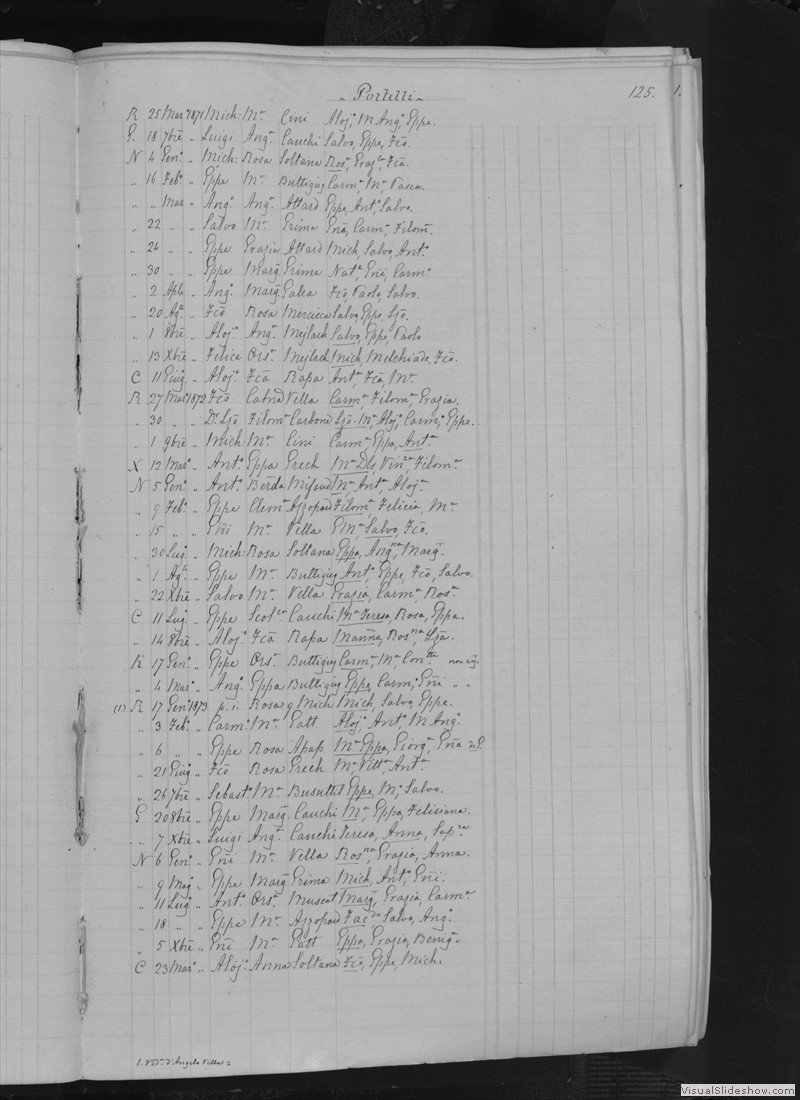 ~ Portelli ~ 125.
R 25 Mar 1871 Mich: Mª Cini Aloj, M Angª, Eppa.
G. 18 7bre " Luigi Angª Cauchi Salvo, Eppe, Fco.
N 4 Genº " Mich: Rosa Soltana Rosª, Fca.
" 16 Febº " Eppe Mª Buttigieg Carmª, Mª, Pasca.
" " Mar " Angº Angª Attard Eppe, Antº, Salvo.
" 22 " " Salvo Mª Grima Gna, Carmª, Filomª.
" 24 " " Eppe Grazia Attard Mich, Salvo, Antª
" 30 " " Eppe Marg Grima Natª, Gni, Carmª
" 2 Aple " Angº Marg Galea Fco, Paolo, Salvo.
" 20 Agº " Fco Rosa Mercieca Salvo, Eppe, Ljo.
" 1 8bre " Alojº Angª Mejlach Salvo, Eppe, Paolo
" 13 Xbre " Felice Orsª Mejlach Mich, Melchiade, Fco.
C 11 Giug " Alojº Fca Rapa Antª, Fca, Mª
R 27 Mar 1872 Fco Catna Vella Carmª, Filomª, Grazia.
" 30 " " Dr Ljo Filomª Carbone Ljo. Mª, Alojº, Carmº, Eppe.
" 1 9bre " Mich: Mª Cini Carmª Eppa, Antª
X 12 Marº " Antº Eppa Grech Mª Dls, Vinza, Filomª
N 5 Genº " Antº Berda Mifsud Mª, Antª, Alojª
" 9 Febº " Eppe Clemª Azzopard Filomª, Felicia, Mª
" 15 " " Gni Mª Vella G Mª, Salvo, Fco.
" 30 Lug " Mich: Rosa Soltana Eppa, Angna, Marg.
" 1 Agº " Eppe Mª Buttigieg Antº, Eppe, Fco, Salvo.
" 22 Xbre " Salvo Mª Vella Grazia, Carmª, Rosª
C 11 Lug " Eppe Scolca Cauchi Mª Teresa, Rosa, Eppa.
" 14 8bre " Alojº Fca Rapa Marina, Rosna, Lja.
K 17 Genº " Eppe Orsª Buttigieg Carmª, Mª Contta
" 4 Marº " Angº Eppa Buttigieg Eppe, Carmº, Gni " "
(1) R 17 Genº 1873 p. i. Rosa q Mich Mich, Salvo, Eppe.
" 3 Febº " Carmº Mª Gatt Alojº, Antº, M Angº
" 6 " " Eppe Rosa Apass Mª Eppa, Giorgª, Gna
" 21 Giug " Fco Rosa Grech Mª, Vittª, Antª
" 26 7bre " Sebastº Mª Busuttil Eppe, Mº, Salvo.
G 20 8bre " Eppe Marg. Cauchi Mª, Eppa, Feliciana.
" 7 Xbre " Luigi Angª Cauchi Teresa, Anna, Sapza
N 6 Genº " Gni Mª Vella Rosna, Grazia, Anna.
" 9 Mag " Eppe Marg Grima Mich, Antº, Gni.
" 11 Lug " Antº Orsª Muscat Marg, Grazia, Carmª
" 18 " " Eppe Mª Azzopard Salvo, Angº
" 5 Xbre " Gni Mª Gatt Eppa, Grazia, Benigª
C 23 Marº " Alojº Anna Soltana Fco, Eppe, Mich.
1. Vedª d'Angelo Vella =
VisualSlideshow.com